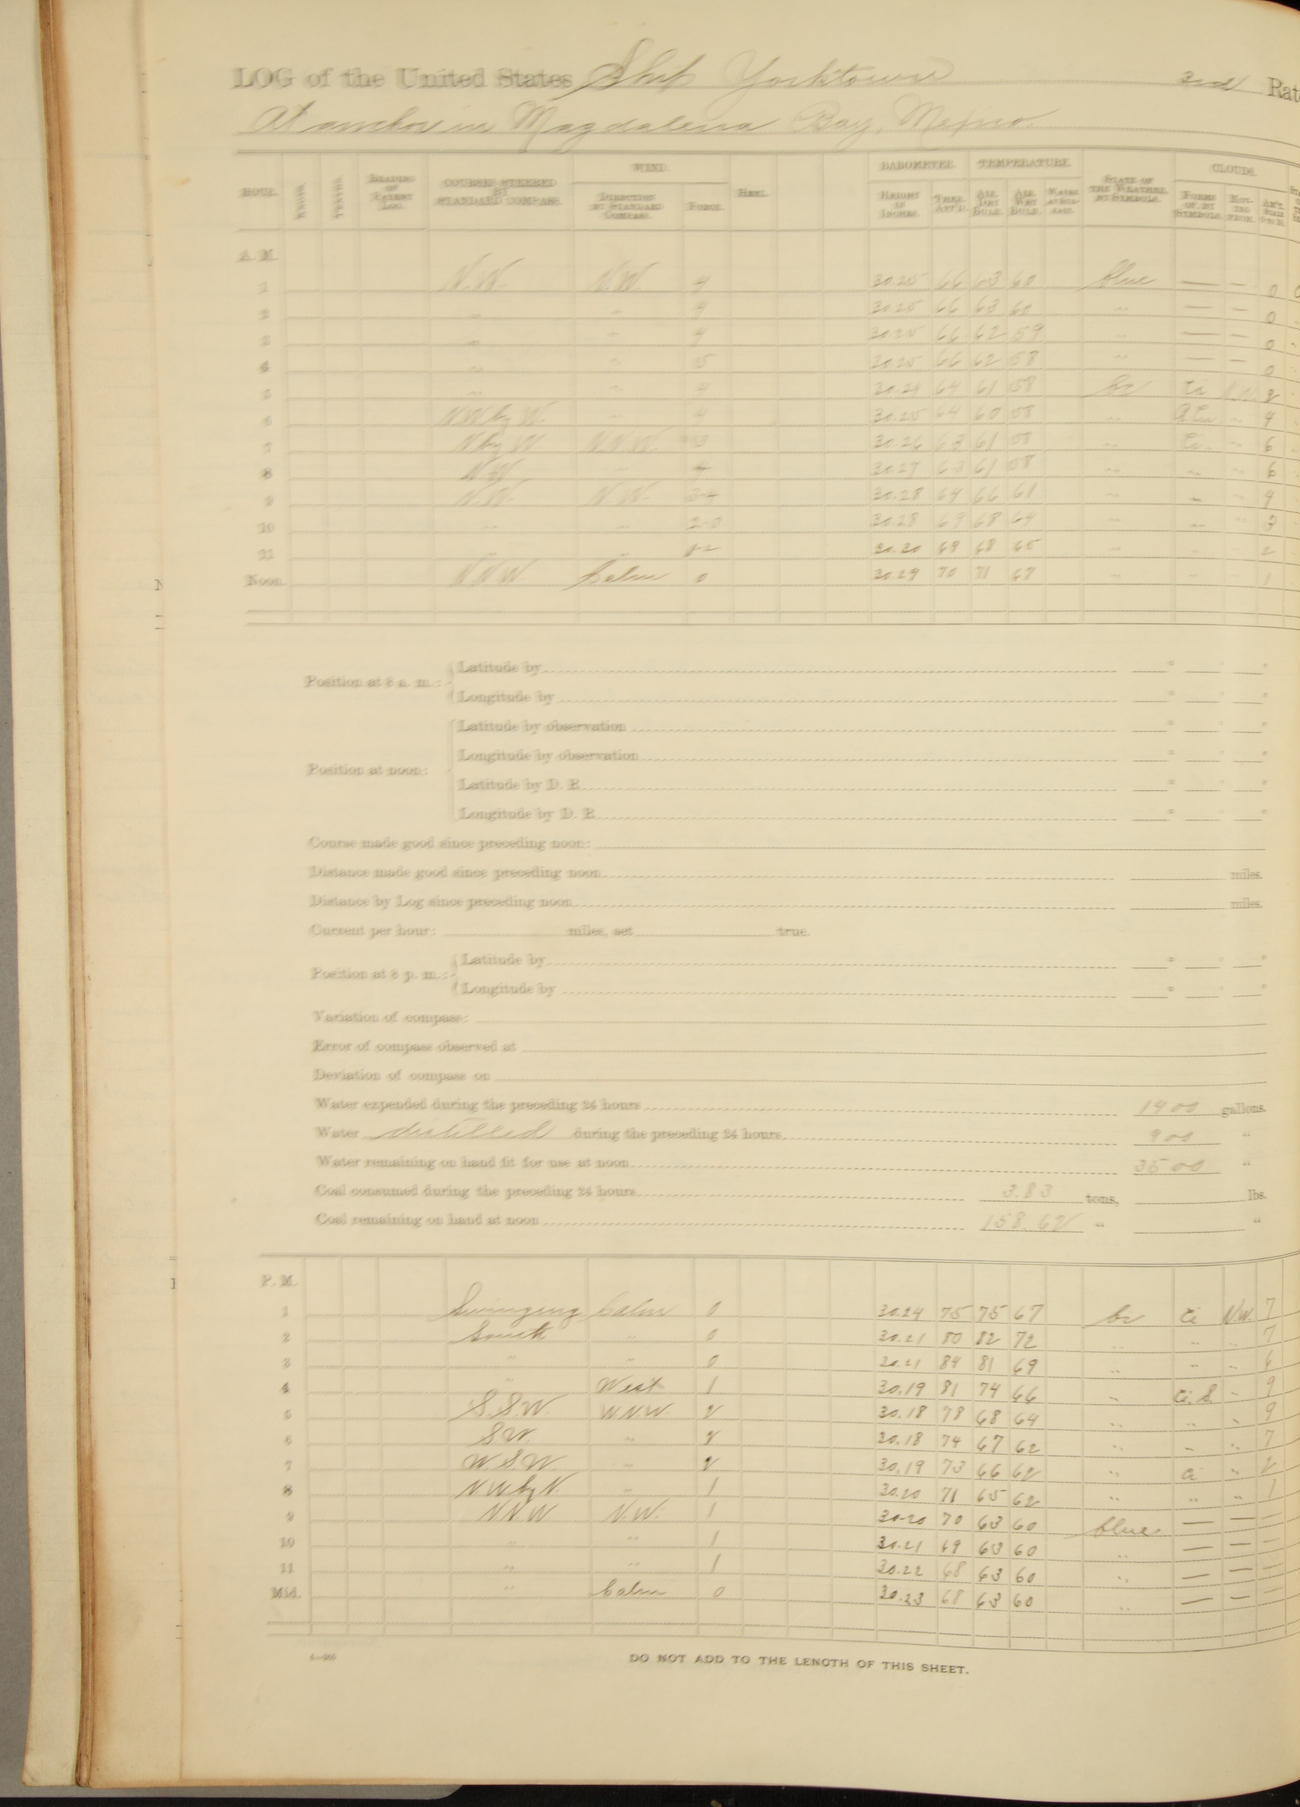 LOG of the United States Ship Yorktown 3rd Rat
At anchor in Magdalena Bay, Mexico.
WIND. BAROMETER. TEMPERATURE. CLOUDS.
HOUR. KNOTS. TENTHS. READING OF PATENT LOG. COURSES STEERED BY STANDARD COMPASS. DIRECTION BY STANDARD COMPASS. FORCE. HEEL. HEIGHT IN INCHES. THER. ATT'D. AIR DRY BULB. AIR WET BULB. WATER AT SURFACE. STATE OF THE WEATHER BY SYMBOLS. FORMS OF, BY SYMBOLS. MOVING FROM.
A. M.
1 N.W. N.W. 4 30.25 66 63 60 blue — — 0
2 " " 4 30.25 66 63 60 " — — 0
3 " " 4 30.25 66 62 59 " — — 0
4 " " 5 30.25 66 62 58 " — — 0
5 " " 4 30.24 64 61 58 bc Ci N.W. 2
6 NW by W. " 4 30.25 64 60 58 " " 4
7 N by W N.N.W. 3 30.26 63 61 58 " " 6
8 NW " 4 30.27 63 61 58 " " " 6
9 N.W. N.W. 3-4 30.28 64 66 61 " " " 4
10 " " 30.28 69 68 64 " " " 3
11 " " 69 68 65 " " " 2
Noon. N.N.W. Calm 0 30.29 70 71 67 " " " 1
Position at 8 a. m.: Latitude by ° ′ ″
Longitude by ° ′ ″
Latitude by observation ° ′ ″
Longitude by observation ° ′ ″
Position at noon:
Latitude by D. R. ° ′ ″
Longitude by D. R. ° ′ ″
Course made good since preceding noon:
Distance made good since preceding noon miles.
Distance by Log since preceding noon miles.
Current per hour: miles, set true.
Position at 8 p. m.: Latitude by ° ′ ″
Longitude by ° ′ ″
Variation of compass:
Error of compass observed at
Deviation of compass on
Water expended during the preceding 24 hours 1400 gallons.
Water distilled during the preceding 24 hours 900 "
Water remaining on hand fit for use at noon 3500 "
Coal consumed during the preceding 24 hours 3.83 tons, lbs.
Coal remaining on hand at noon 158.62 " "
P. M.
1 Swinging Calm 0 30.24 75 75 67 bc Ci N.W. 7
2 South " 0 30.21 80 82 72 " " " 7
3 " " 0 30.21 84 81 69 " " " 6
4 " West 1 30.19 81 74 66 " Ci.S. " 9
5 S.S.W. W.N.W. 2 30.18 78 68 64 " " " 9
6 S.W. " 2 30.18 74 67 62 " " " 7
7 W.S.W. " 2 30.19 73 66 62 " Ci " 2
8 N.W. by N. " 1 30.20 71 65 62 " " " 1
9 N.N.W N.W. 1 30.20 70 63 60 blue — — —
10 " " 1 30.21 69 63 60 " — — —
11 " " 1 30.22 68 63 60 " — — —
Mid. " Calm 0 30.23 68 63 60 " — — —
DO NOT ADD TO THE LENGTH OF THIS SHEET.